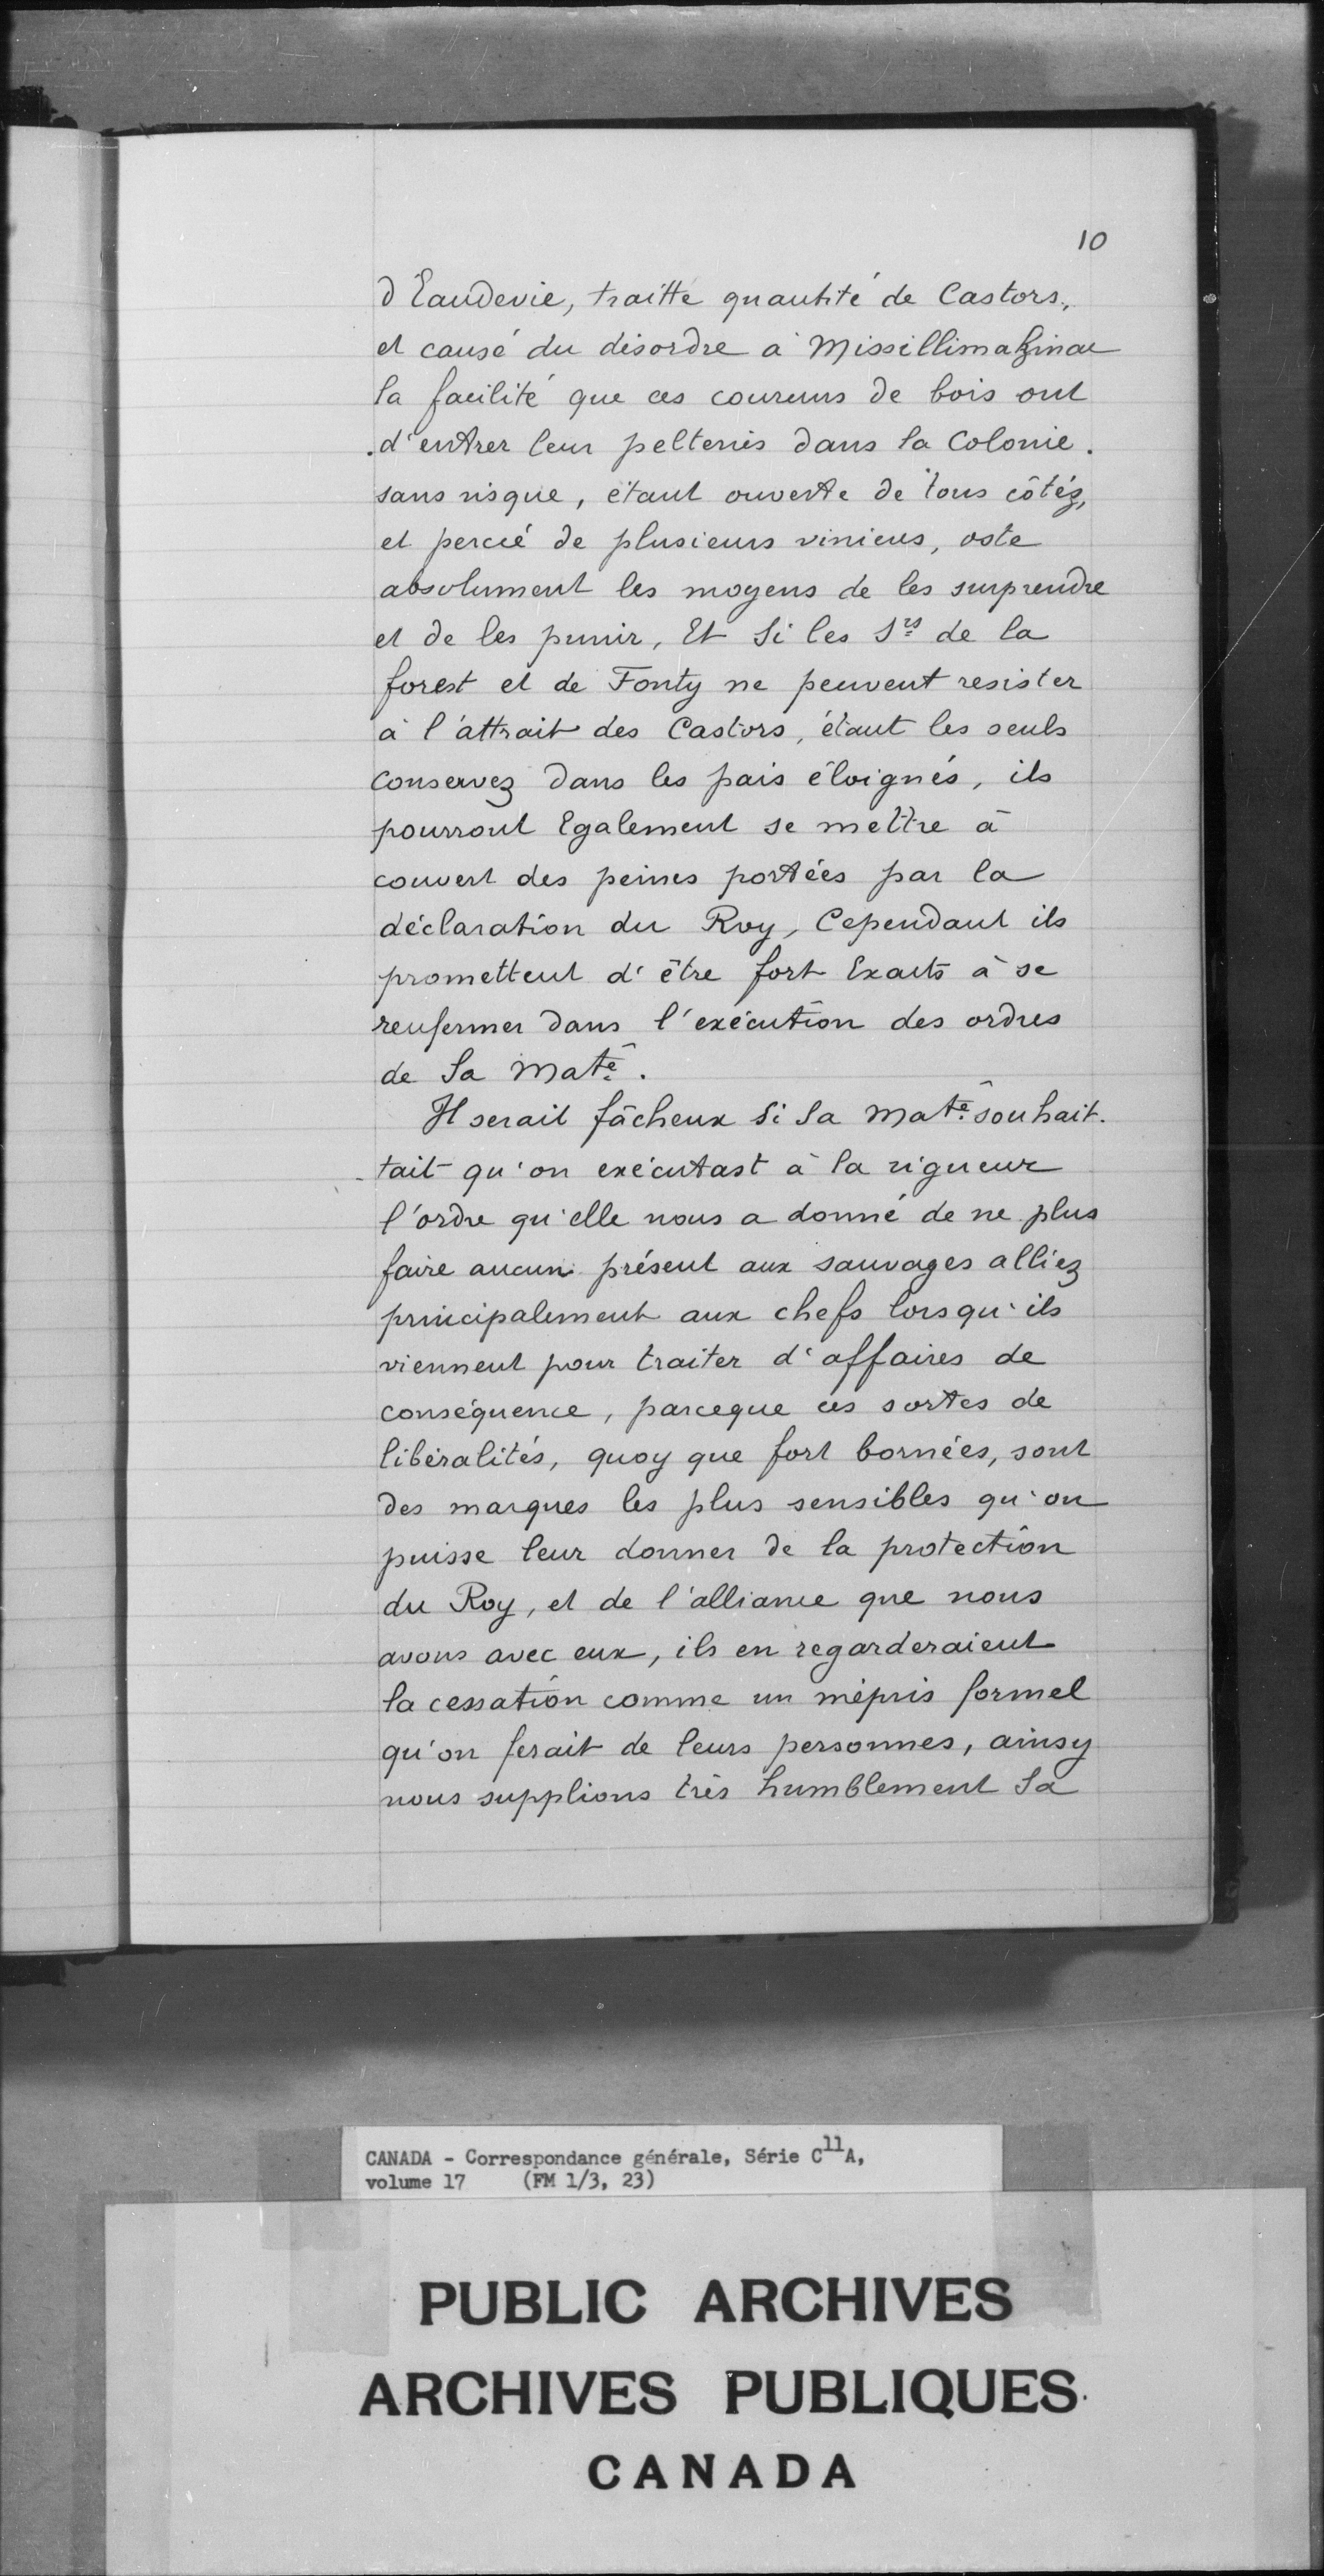 10
d'Eaudevie, traitté quantité de Castors,
et causé du désordre à Missillimakinac
la facilité que ces coureurs de bois ont
d'entrer leur pelteries dans la Colonie.
sans risque, étant ouverte de tous côtéz,
et percée de plusieurs rivieres, oste
absolument les moyens de les surprendre
et de les punir, Et Si les Srs de la
forest et de Tonty ne peuvent resister
à l'attrait des Castors, étant les seuls
conservez dans les pais éloignés, ils
pourront Egalement se mettre à
couvert des peines portées par la
déclaration du Roy, Cependant ils
promettent d'être fort Exacts à se
renfermer dans l'exécution des ordres
de Sa Maté.
Il serait fâcheux Si Sa Maté souhait-
tait qu'on exécutast à la rigueur
l'ordre qu'elle nous a donné de ne plus
faire aucun présent aux sauvages alliez
principalement aux chefs lorsqu'ils
viennent pour traiter d'affaires de
conséquence, parceque ces sortes de
libéralités, quoy que fort bornées, sont
des marques les plus sensibles qu'on
puisse leur donner de la protection
du Roy, et de l'alliance que nous
avons avec eux, ils en regarderaient
la cessation comme un mépris formel
qu'on ferait de leurs personnes, ainsy
nous supplions très humblement Sa
CANADA - Correspondance générale, Série C11A,
volume 17 (FM 1/3, 23)
PUBLIC ARCHIVES
ARCHIVES PUBLIQUES
CANADA